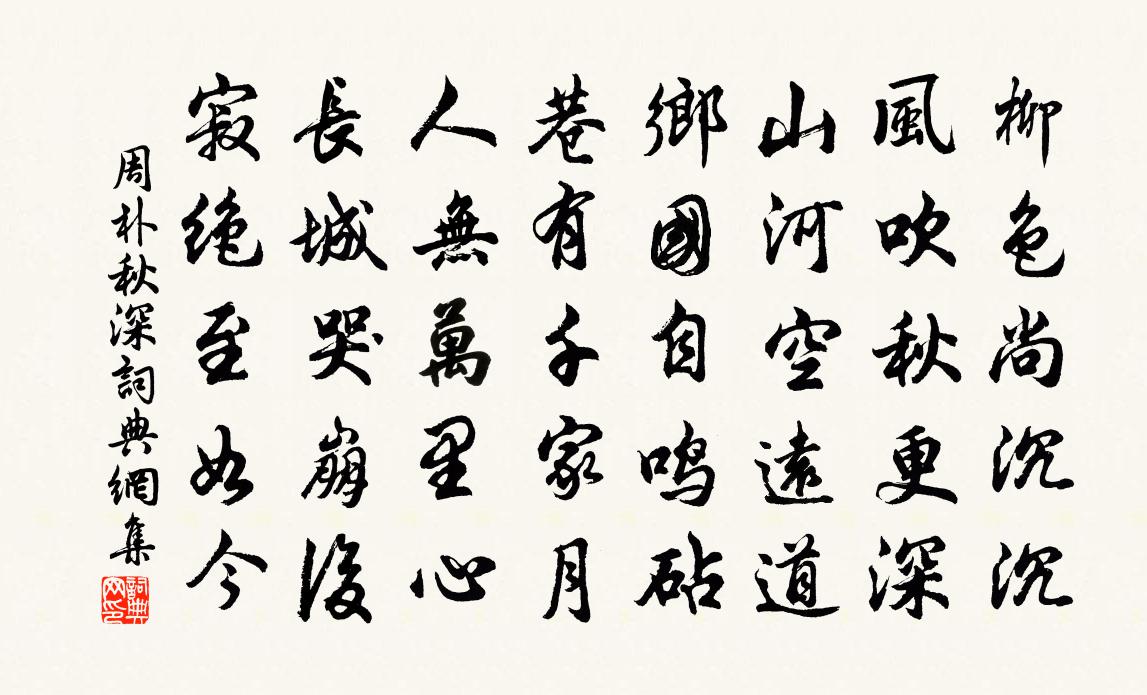 柳色尚沉沉
風吹秋更深
山河空遠道
鄉國自鳴砧
巷有千家月
人無萬里心
長城哭崩後
寂绝至如今
周朴秋深詞典網集
詞典网印